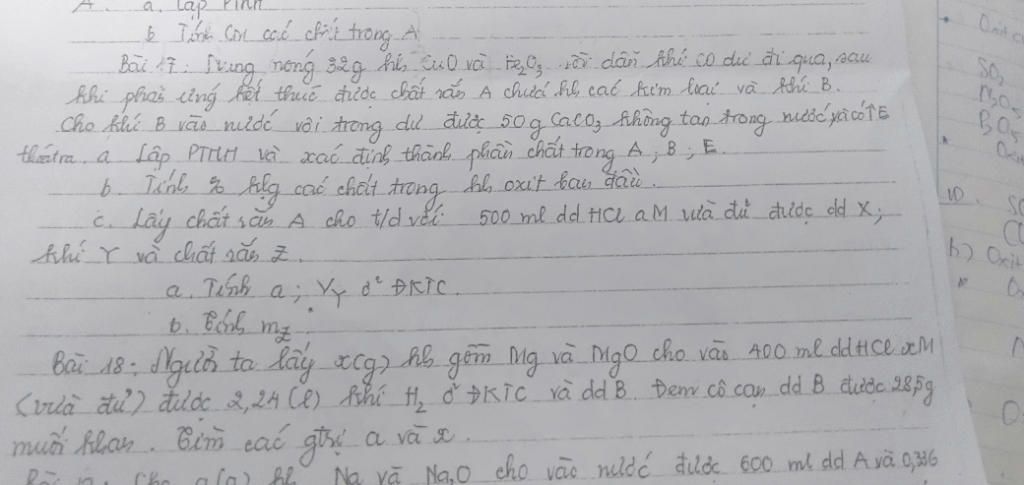 a. Lập PTHH
b Tính CM các chất trong A
Bài 17: Nung nóng 32g hh CuO và Fe2O3 rồi dẫn khí CO dư đi qua, sau
khi phản ứng kết thúc được chất rắn A chứa hh các kim loại và khí B.
Cho khí B vào nước vôi trong dư được 50g CaCO3 không tan trong nước và có ↑E
thoát ra. a Lập PTHH và xác định thành phần chất trong A; B; E.
b. Tính % klg các chất trong hh oxit ban đầu.
c. Lấy chất rắn A cho t/d với 500 ml dd HCl aM vừa đủ được dd X;
khí Y và chất rắn Z.
a. Tính a; VY ở ĐKTC
b. Tính mZ.
Bài 18: Người ta lấy x(g) hh gồm Mg và MgO cho vào 400 ml dd HCl xM
(vừa đủ) được 2,24(l) khí H2 ở ĐKTC và dd B. Đem cô cạn dd B được 28,5g
muối khan. Tìm các gtrị a và x.
Cho a(g) hh Na và Na2O cho vào nước được 600 ml dd A và 0,336
Oxit
SO2
N2O5
10.
b) Oxit